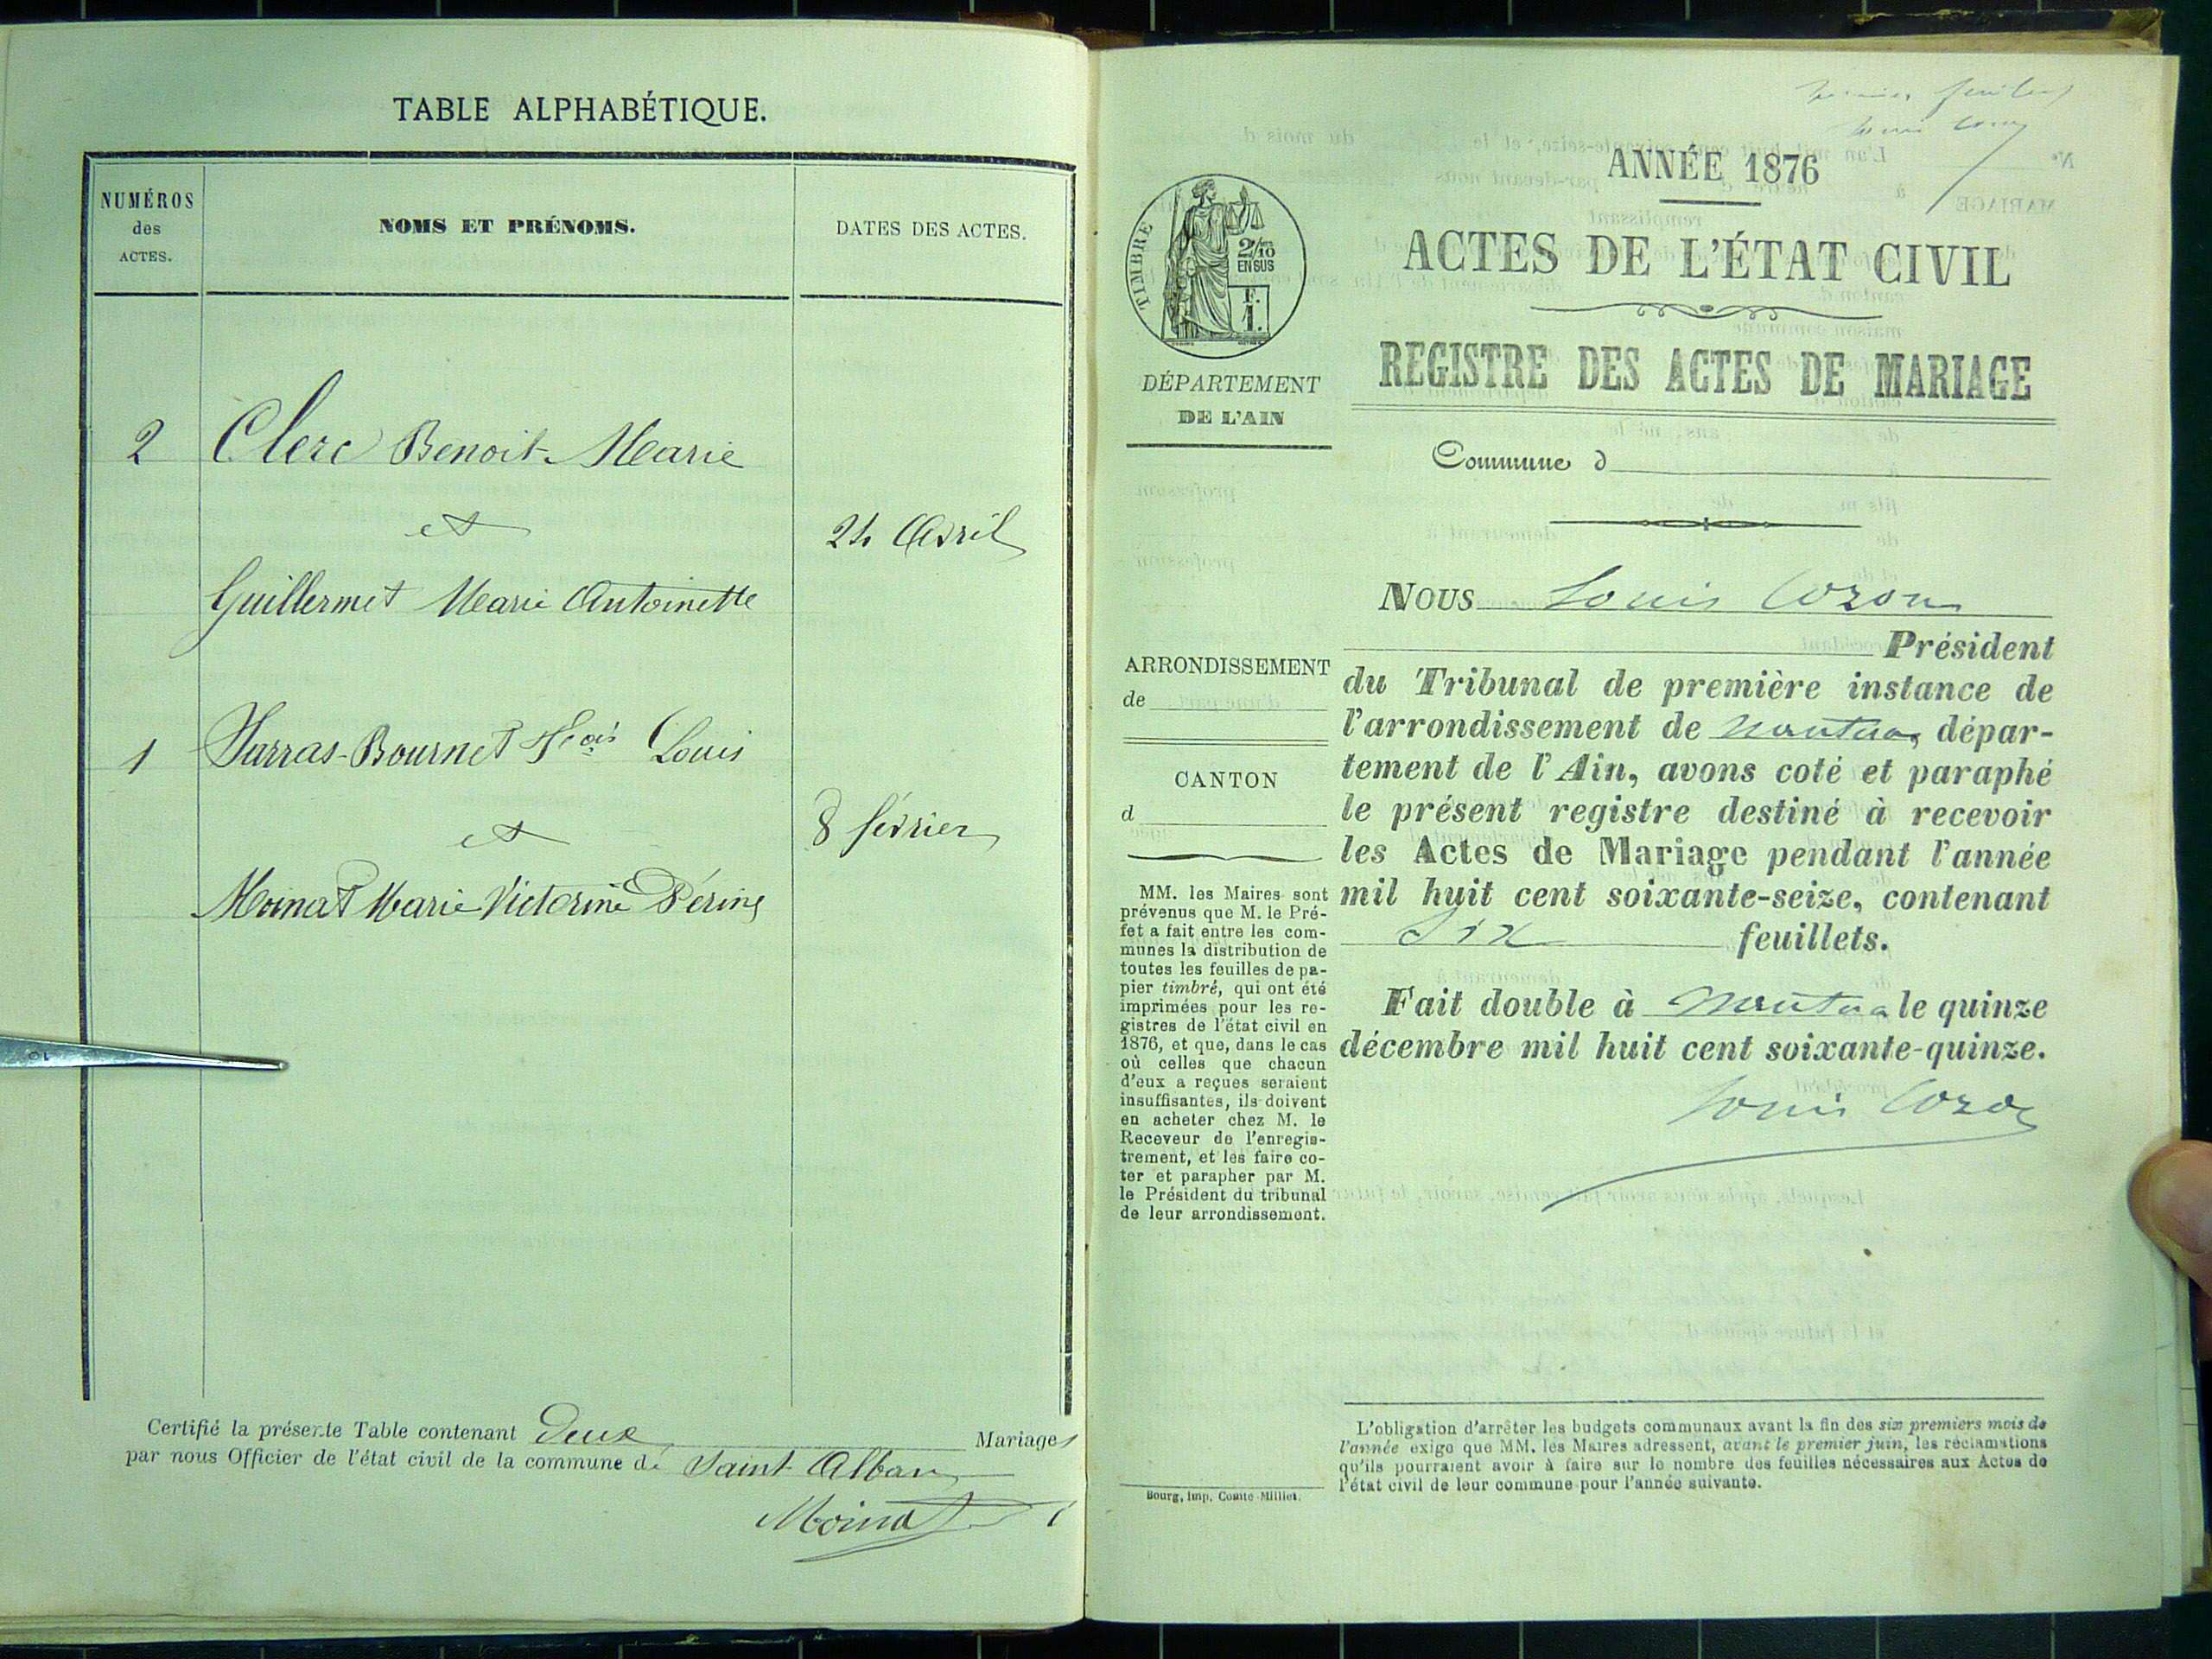 TABLE ALPHABÉTIQUE.
NUMÉROS
des
ACTES.
NOMS ET PRÉNOMS.
DATES DES ACTES.
2 Clerc Benoit-Marie
et
24 Avril
Guillermet Marie Antoinette
1 Jarras-Bournet fçois Louis
et
8 février
Moinat Marie Victorine Périne
Certifié la présente Table contenant Deux Mariages
par nous Officier de l'état civil de la commune de Saint Alban
Moinat
premier feuillet
Louis Cozon
ANNÉE 1876
ACTES DE L'ÉTAT CIVIL
REGISTRE DES ACTES DE MARIAGE
TIMBRE
2/10
EN SUS
F.
1.
DÉPARTEMENT
DE L'AIN
Commune d
Nous Louis Cozon
Président
du Tribunal de première instance de
l'arrondissement de Nantua, dépar-
tement de l'Ain, avons coté et paraphé
le présent registre destiné à recevoir
les Actes de Mariage pendant l'année
mil huit cent soixante-seize, contenant
Six feuillets.
Fait double à Nantua le quinze
décembre mil huit cent soixante-quinze.
Louis Cozon
ARRONDISSEMENT
de
CANTON
d
MM. les Maires sont
prévenus que M. le Pré-
fet a fait entre les com-
munes la distribution de
toutes les feuilles de pa-
pier timbré, qui ont été
imprimées pour les re-
gistres de l'état civil en
1876, et que, dans le cas
où celles que chacun
d'eux a reçues seraient
insuffisantes, ils doivent
en acheter chez M. le
Receveur de l'enregis-
trement, et les faire co-
ter et parapher par M.
le Président du tribunal
de leur arrondissement.
Bourg, imp. Comte-Milliet.
L'obligation d'arrêter les budgets communaux avant la fin des six premiers mois de
l'année exige que MM. les Maires adressent, avant le premier juin, les réclamations
qu'ils pourraient avoir à faire sur le nombre des feuilles nécessaires aux Actes de
l'état civil de leur commune pour l'année suivante.